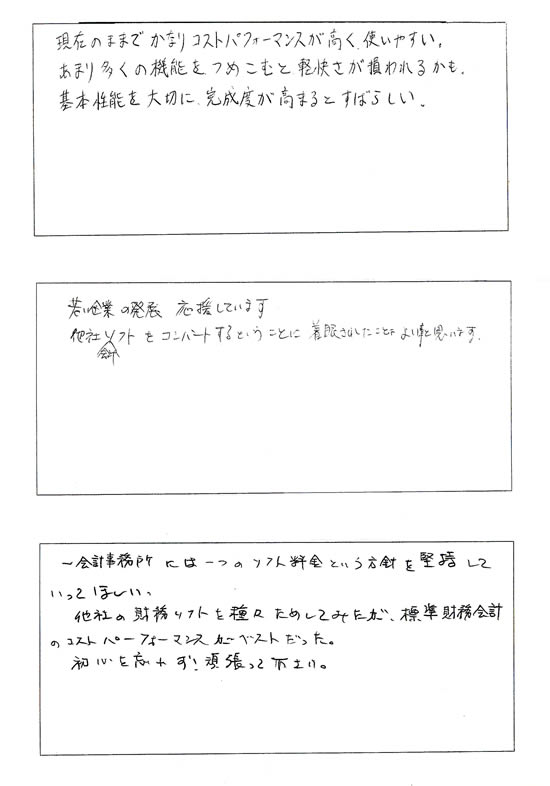 現在のままでかなりコストパフォーマンスが高く、使いやすい。
あまり多くの機能をつめこむと軽快さが損われるかも。
基本性能を大切に、完成度が高まるとすばらしい。
若い企業の発展 応援しています
他社ソフトをコンバートするということに着眼されたことはよい事と思います。
会計
～会計事務所には一つのソフト料金という方針を堅持して
いってほしい。
他社の財務ソフトを種々ためしてみたが、標準財務会計
のコストパーフォーマンスがベストだった。
初心を忘れず!頑張って下さい。